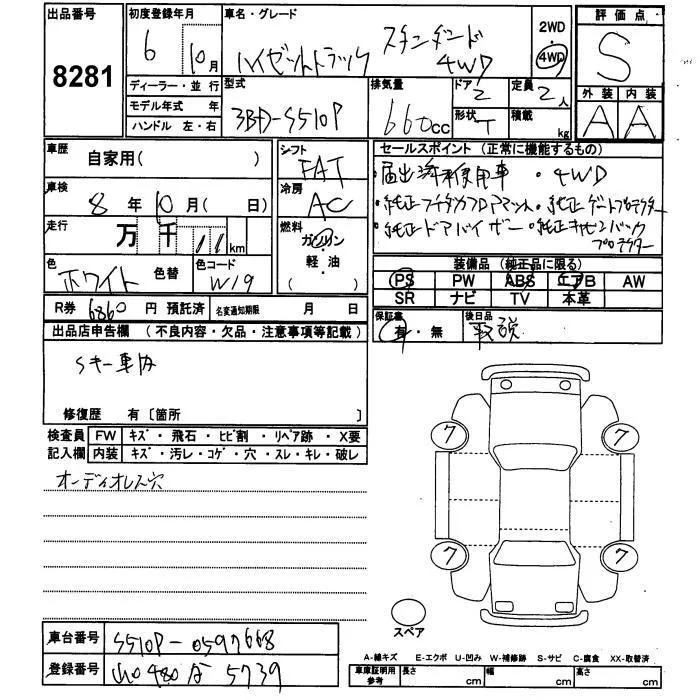 出品番号
8281
初度登録年月
6年 10月
車名・グレード
ハイゼットトラック スタンダード 4WD
2WD
4WD
評価点
S
外装 内装
A A
ディーラー・並行
モデル年式 年
ハンドル 左・右
型式
3BD-S510P
排気量
660cc
ドア
2
形状
T
定員
2人
積載
kg
車歴
自家用( )
シフト
FAT
車検
8年 10月( 日)
冷房
AC
走行
万 千 11 km
燃料
ガソリン
軽・油
( )
色
ホワイト
色替
色コード
W19
R券 6860円 預託済
名変通知期限 月 日
セールスポイント (正常に機能するもの)
・届出済未使用車 ・4WD
・純正フキダクフロアマット ・純正ゲートプロテクター
・純正ドアバイザー ・純正キャビンバック
プロテクター
装備品 (純正品に限る)
PS PW ABS エアB AW
SR ナビ TV 本革
保証書
有・無
後日品
取説
出品店申告欄 (不良内容・欠品・注意事項等記載)
Sキー車内
修復歴 有〔箇所 〕
検査員 FW キズ・飛石・ヒビ割・リペア跡・X要
記入欄 内装 キズ・汚レ・コゲ・穴・スレ・キレ・破レ
オーディオレス穴
7 7
7 7
スペア
車台番号
S510P-0597668
登録番号
480 5739
A-線キズ E-エクボ U-凹み W-補修跡 S-サビ C-腐食 XX-取替済
車庫証明用参考 長さ cm 幅 cm 高さ cm